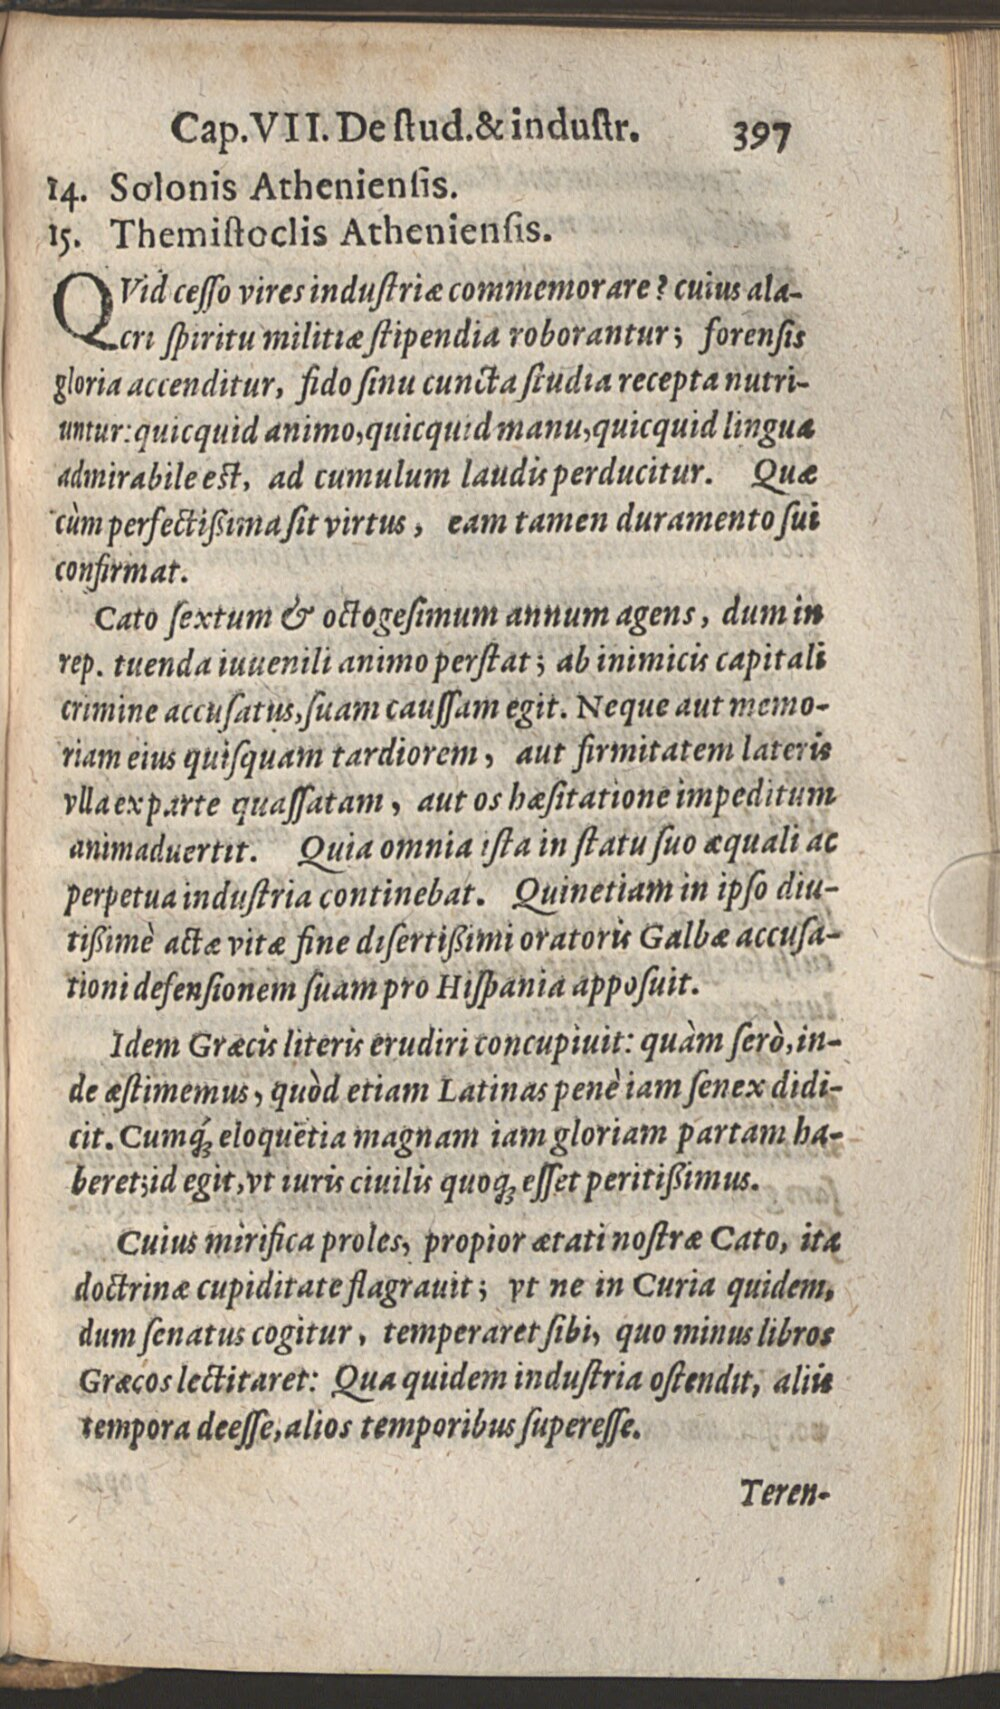 Cap. VII. De ſtud. & induſtr. 397
14. Solonis Athenienſis.
15. Themiſtoclis Athenienſis.
QVid ceſſo vires induſtriæ commemorare? cuius ala-
cri ſpiritu militiæ ſtipendia roborantur; forenſis
gloria accenditur, fido ſinu cuncta ſtudia recepta nutri-
untur: quicquid animo, quicquid manu, quicquid lingua
admirabile eſt, ad cumulum laudis perducitur. Quæ
cùm perfectißima ſit virtus, eam tamen duramento ſui
confirmat.
Cato ſextum & octogeſimum annum agens, dum in
rep. tuenda iuuenili animo perſtat; ab inimicis capitali
crimine accuſatus, ſuam cauſſam egit. Neque aut memo-
riam eius quiſquam tardiorem, aut firmitatem lateris
vlla ex parte quaſſatam, aut os hæſitatione impeditum
animaduertit. Quia omnia iſta in ſtatu ſuo æquali ac
perpetua induſtria continebat. Quinetiam in ipſo diu-
tißimè actæ vitæ fine diſertißimi oratoris Galbæ accuſa-
tioni defenſionem ſuam pro Hiſpania appoſuit.
Idem Græcis literis erudiri concupiuit: quàm ſerò, in-
de æſtimemus, quòd etiam Latinas penè iam ſenex didi-
cit. Cumq́; eloquētia magnam iam gloriam partam ha-
beret; id egit, vt iuris ciuilis quoq; eſſet peritißimus.
Cuius mirifica proles, propior ætati noſtræ Cato, ita
doctrinæ cupiditate flagrauit; vt ne in Curia quidem,
dum ſenatus cogitur, temperaret ſibi, quo minus libros
Græcos lectitaret: Qua quidem induſtria oſtendit, aliis
tempora deeſſe, alios temporibus ſupereſſe.
Teren-